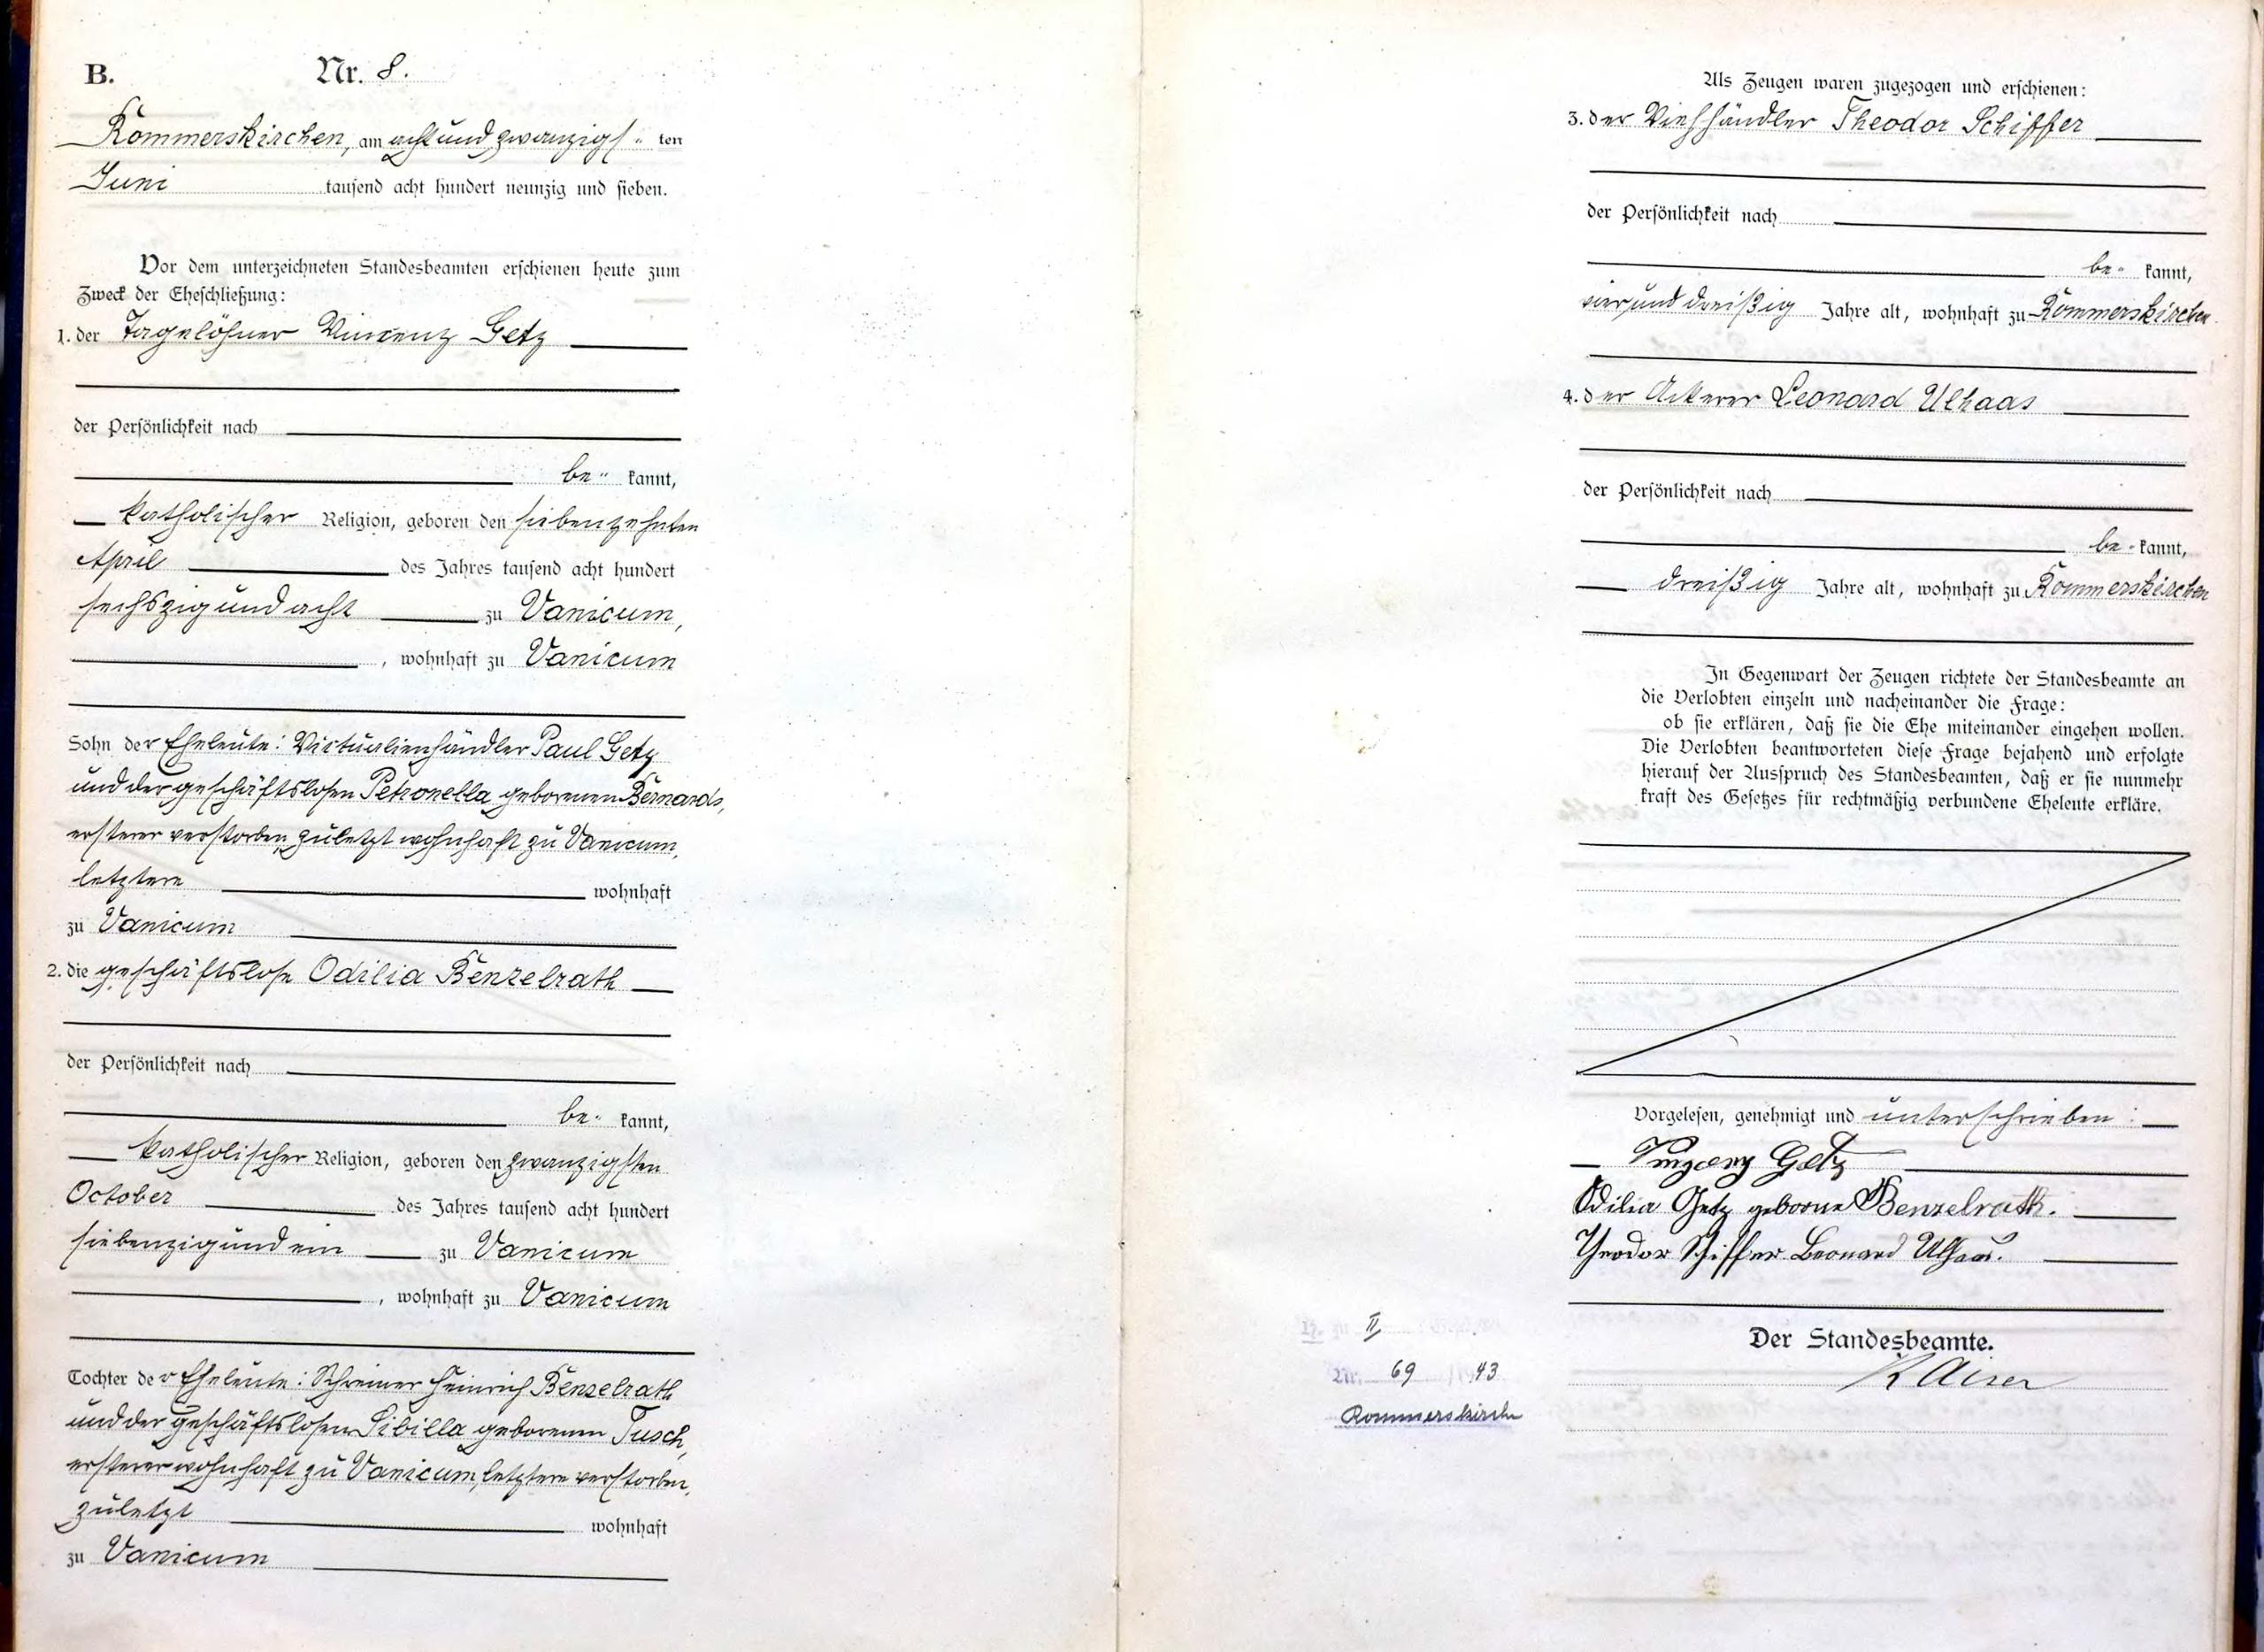 B. Nr. 8.
Rommerskirchen, am acht und zwanzigs" ten
Juni tausend acht hundert neunzig und sieben.
Vor dem unterzeichneten Standesbeamten erschienen heute zum
Zweck der Eheschließung:
1. der Tagelöhner Vincenz Getz
der Persönlichkeit nach
be" kannt,
katholischer Religion, geboren den siebenzehnten
April des Jahres tausend acht hundert
sechszig und acht zu Vanicum,
, wohnhaft zu Vanicum
Sohn der Eheleute: Victualienhändler Paul Getz
und der geschäftslosen Petronella geborenen Bernards,
ersterer verstorben, zuletzt wohnhaft zu Vanicum,
letztere wohnhaft
zu Vanicum
2. die geschäftslose Odilia Benzelrath
der Persönlichkeit nach
be" kannt,
katholischer Religion, geboren den zwanzigsten
October des Jahres tausend acht hundert
siebenzig und ein zu Vanicum
, wohnhaft zu Vanicum
Tochter der Eheleute: Schreiner Heinrich Benzelrath
und der geschäftslosen Sibilla geborenen Tusch,
ersterer wohnhaft zu Vanicum, letztere verstorben,
zuletzt wohnhaft
zu Vanicum
Als Zeugen waren zugezogen und erschienen:
3. der Viehhändler Theodor Schiffer
der Persönlichkeit nach
be" kannt,
vier und dreißig Jahre alt, wohnhaft zu Rommerskirchen
4. der Ackerer Leonard Ulhaas
der Persönlichkeit nach
be" kannt,
dreißig Jahre alt, wohnhaft zu Rommerskirchen
In Gegenwart der Zeugen richtete der Standesbeamte an
die Verlobten einzeln und nacheinander die Frage:
ob sie erklären, daß sie die Ehe miteinander eingehen wollen.
Die Verlobten beantworteten diese Frage bejahend und erfolgte
hierauf der Ausspruch des Standesbeamten, daß er sie nunmehr
kraft des Gesetzes für rechtmäßig verbundene Eheleute erkläre.
Vorgelesen, genehmigt und unterschrieben:
Vinzenz Getz
Odilia Getz geborne Benzelrath.
Theodor Schiffer Leonard Ulhaas.
Der Standesbeamte.
Kaiser
II
Nr. 69 43
Rommerskirchen